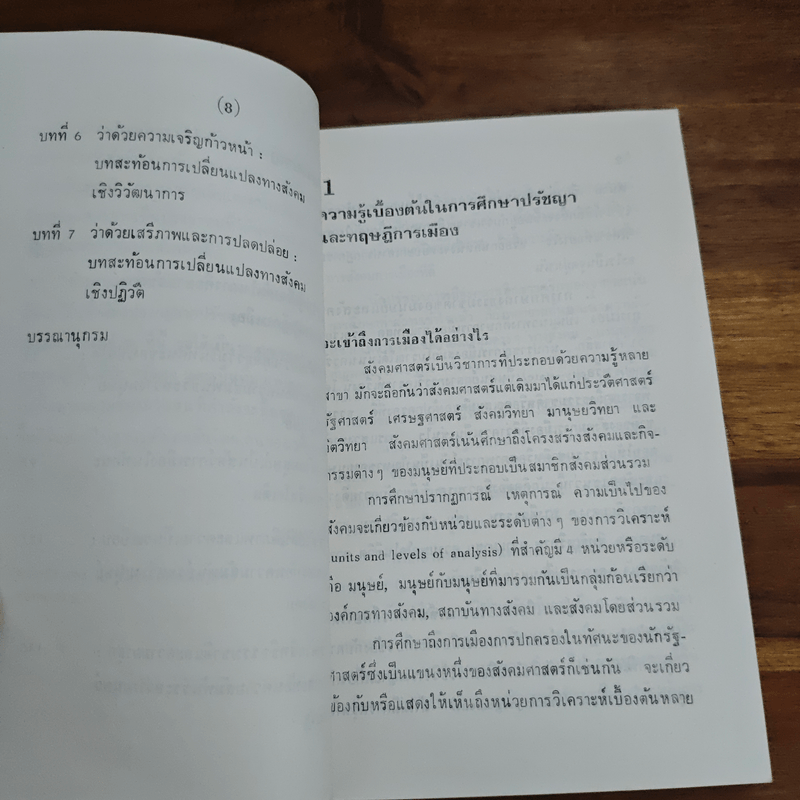 (8)
บทที่ 6 ว่าด้วยความเจริญก้าวหน้า :
บทสะท้อนการเปลี่ยนแปลงทางสังคม
เชิงวิวัฒนาการ
บทที่ 7 ว่าด้วยเสรีภาพและการปลดปล่อย :
บทสะท้อนการเปลี่ยนแปลงทางสังคม
เชิงปฏิวัติ
บรรณานุกรม
1
ความรู้เบื้องต้นในการศึกษาปรัชญา
และทฤษฎีการเมือง
จะเข้าถึงการเมืองได้อย่างไร
สังคมศาสตร์เป็นวิชาการที่ประกอบด้วยความรู้หลาย
สาขา มักจะถือกันว่าสังคมศาสตร์แต่เดิมมาได้แก่ประวัติศาสตร์
รัฐศาสตร์ เศรษฐศาสตร์ สังคมวิทยา มานุษยวิทยา และ
จิตวิทยา สังคมศาสตร์เน้นศึกษาถึงโครงสร้างสังคมและกิจ-
กรรมต่างๆ ของมนุษย์ที่ประกอบเป็นสมาชิกสังคมส่วนรวม
การศึกษาปรากฏการณ์ เหตุการณ์ ความเป็นไปของ
สังคมจะเกี่ยวข้องกับหน่วยและระดับต่างๆ ของการวิเคราะห์
units and levels of analysis) ที่สำคัญมี 4 หน่วยหรือระดับ
คือ มนุษย์, มนุษย์กับมนุษย์ที่มารวมกันเป็นกลุ่มก้อนเรียกว่า
องค์การทางสังคม, สถาบันทางสังคม และสังคมโดยส่วนรวม
การศึกษาถึงการเมืองการปกครองในทัศนะของนักรัฐ-
ศาสตร์ซึ่งเป็นแขนงหนึ่งของสังคมศาสตร์ก็เช่นกัน จะเกี่ยว
ข้องกับหรือแสดงให้เห็นถึงหน่วยการวิเคราะห์เบื้องต้นหลาย